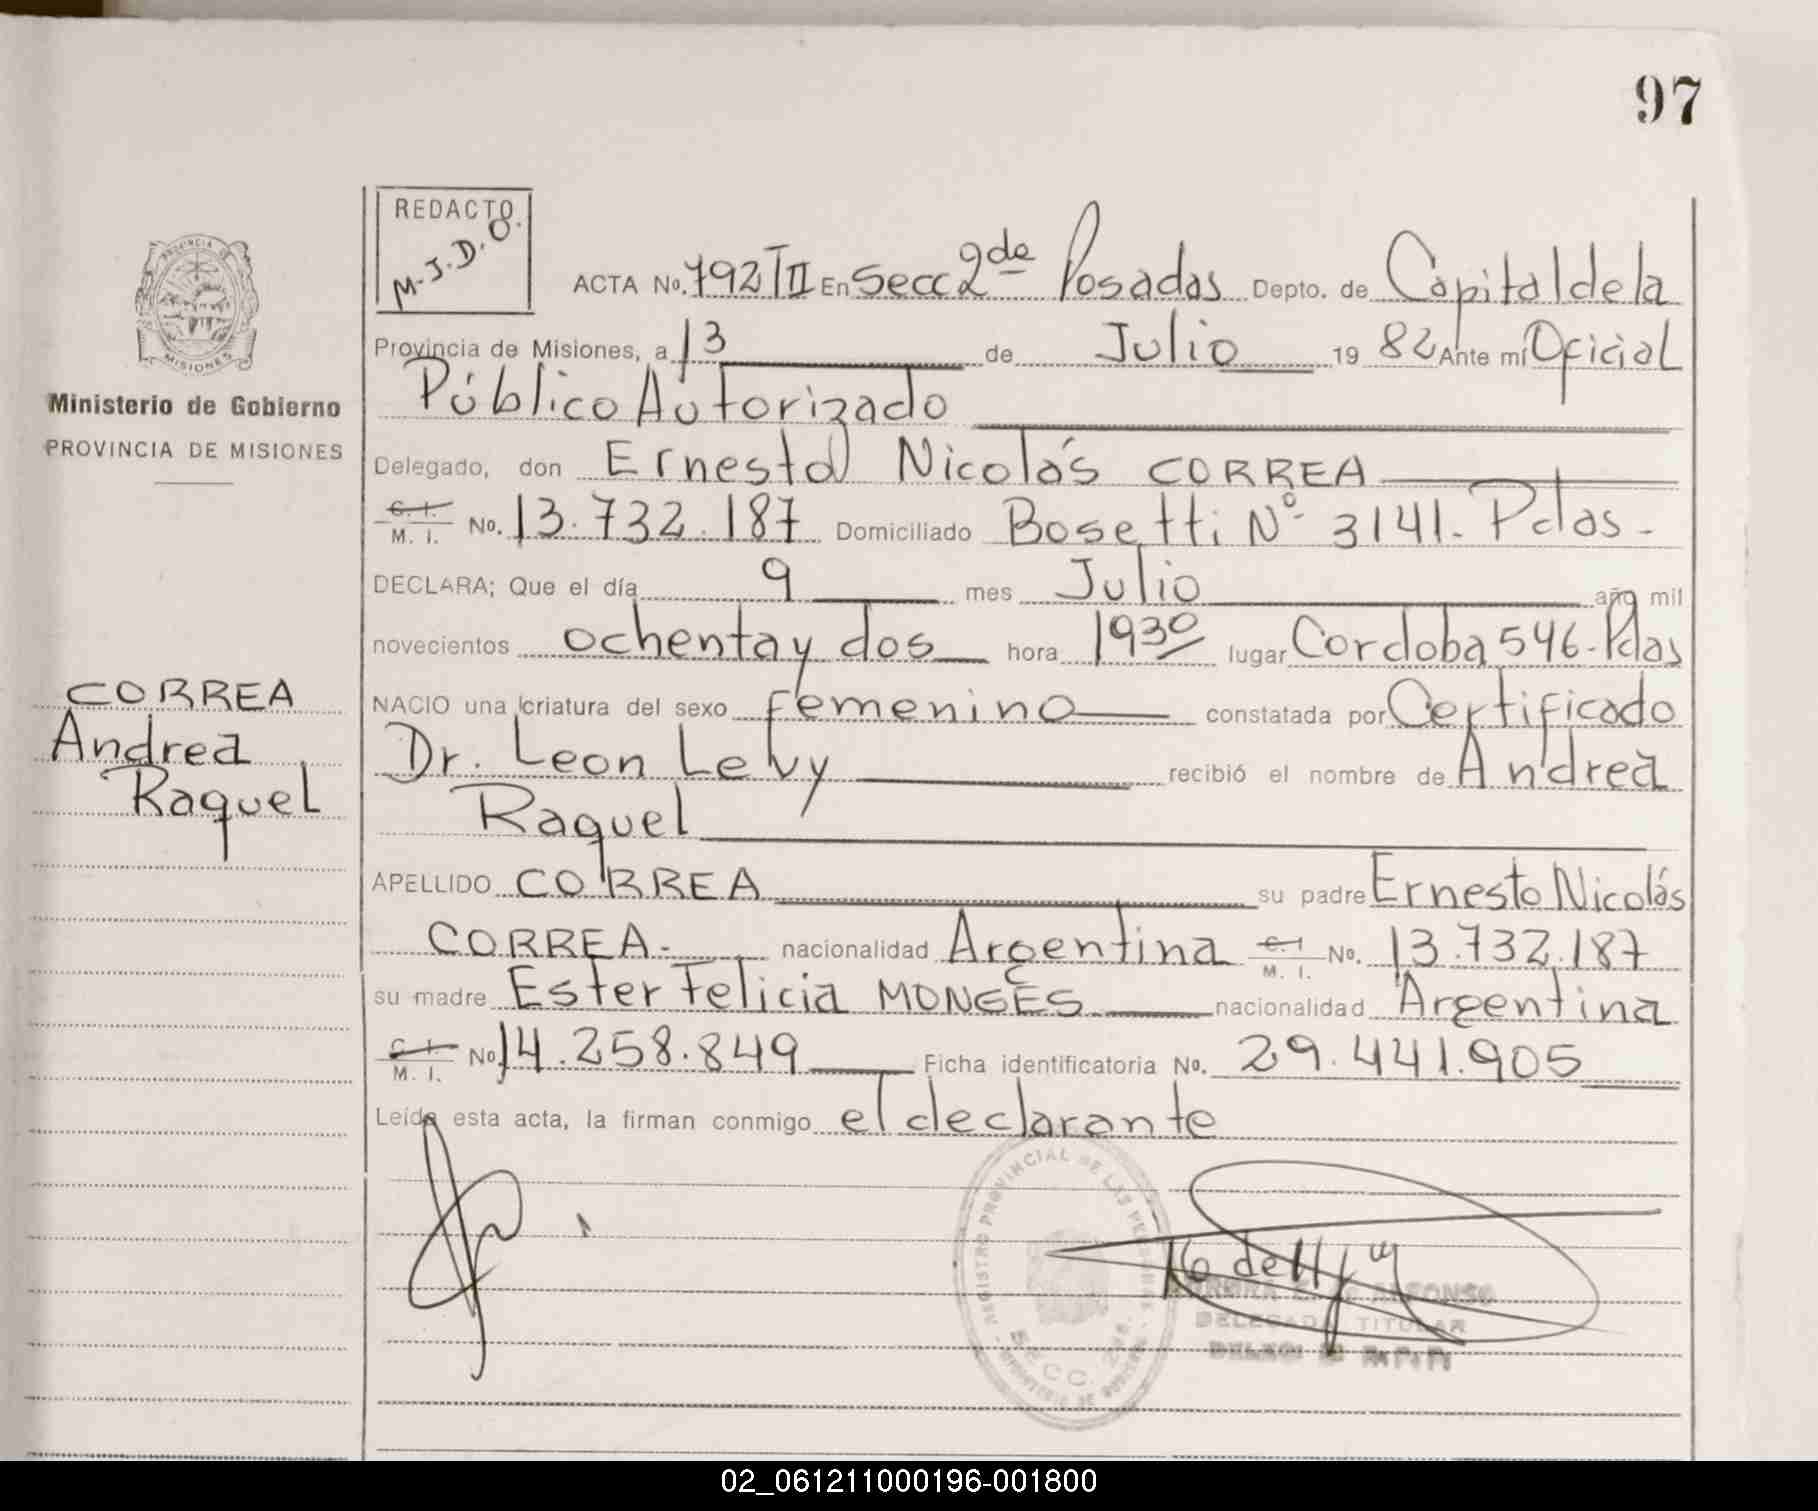 97
REDACTO
M.J.D.O.
ACTA No. 792 TII En Secc 2da Posadas Depto. de Capital de la
Provincia de Misiones, a 13 de Julio 19 82 Ante mi Oficial
Público Autorizado
Delegado, don Ernesto Nicolás CORREA
C. I.
M. I. No. 13.732.187 Domiciliado Bosetti Nº 3141. Pdas.
DECLARA; Que el día 9 mes Julio año mil
novecientos ochenta y dos hora 1930 lugar Cordoba 546. Pdas
NACIO una criatura del sexo femenino constatada por Certificado
Dr. Leon Levy recibió el nombre de Andrea
Raquel
APELLIDO CORREA su padre Ernesto Nicolás
CORREA. nacionalidad Argentina C. I
M. I. No. 13.732.187
su madre Ester Felicia MONGES nacionalidad Argentina
C. I.
M. I. No 14.258.849 Ficha identificatoria No. 29.441.905
Leída esta acta, la firman conmigo el declarante
PROVINCIA DE
MISIONES
Ministerio de Gobierno
PROVINCIA DE MISIONES
CORREA
Andrea
Raquel
REGISTRO PROVINCIAL DE LAS PERSONAS
SECC. 2da.
MINISTERIO DE GOBIERNO
ALFONSO
DELEGADA TITULAR
02_061211000196-001800